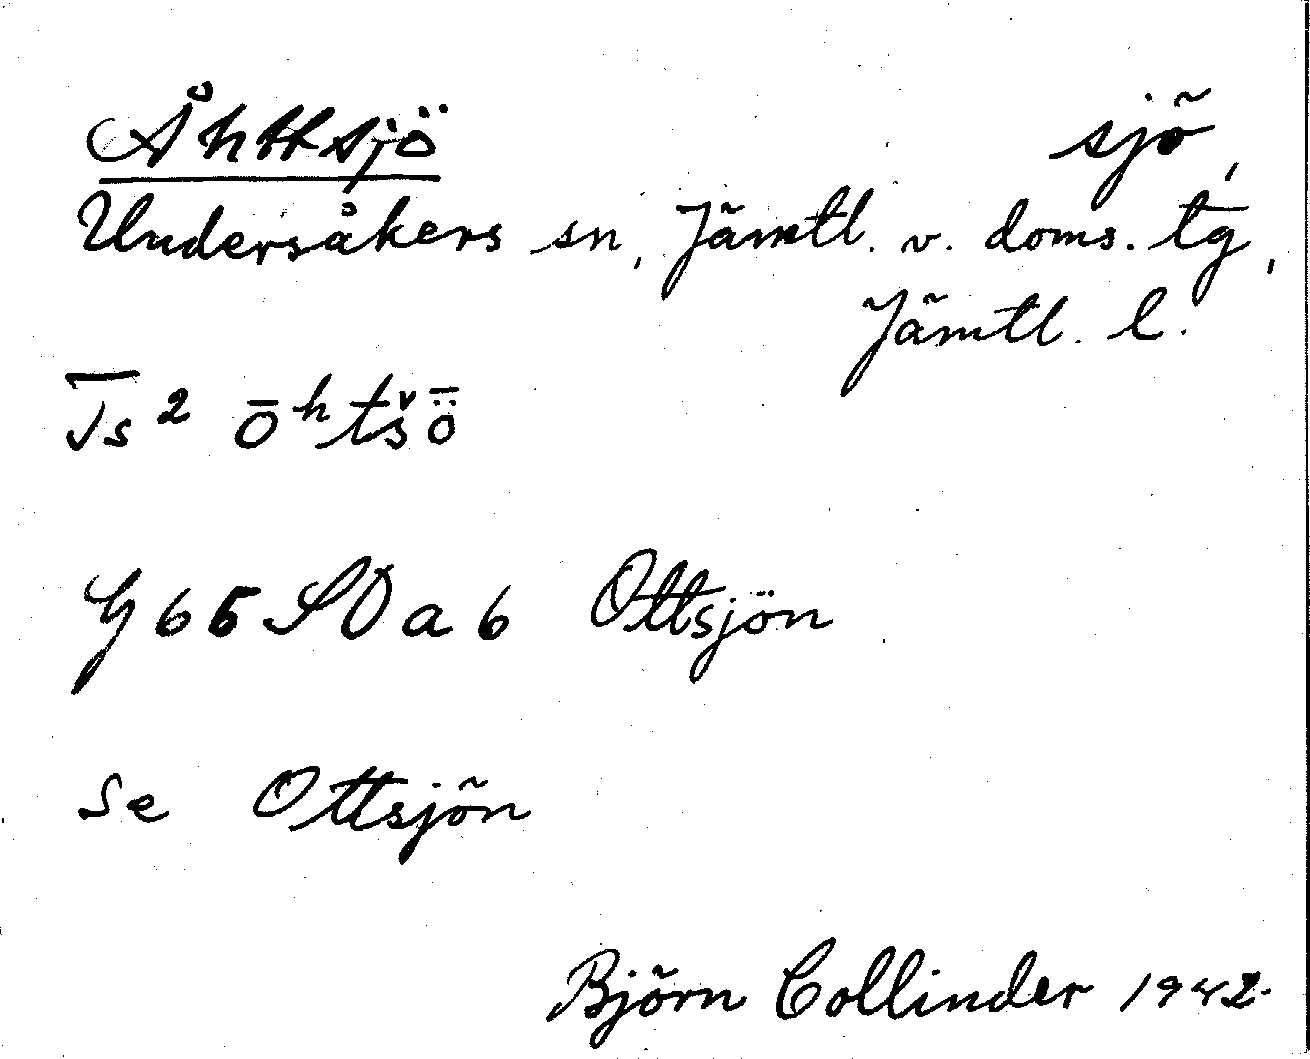 Åhttsjö sjö,
Undersåkers sn, Jämtl. v. doms. tg,
Jämtl. l.
Js² ōʰtšȫ
G 65 SV a 6 Ottsjön
Se Ottsjön
Björn Collinder 1942.